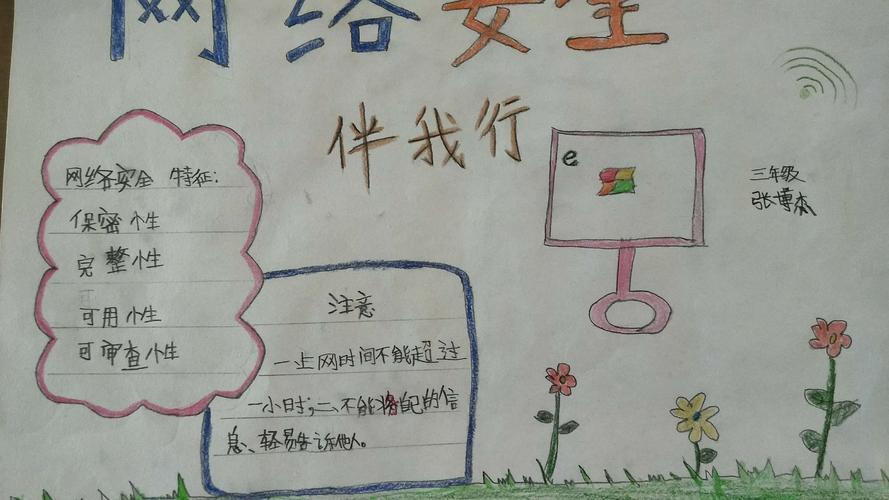 网络安全
伴我行
网络安全 特征:
保密性
完整性
可用性
可审查性
注意
一上网时间不能超过
一小时;二、不能将自己的信
息、轻易告诉他人。
e
三年级
张博